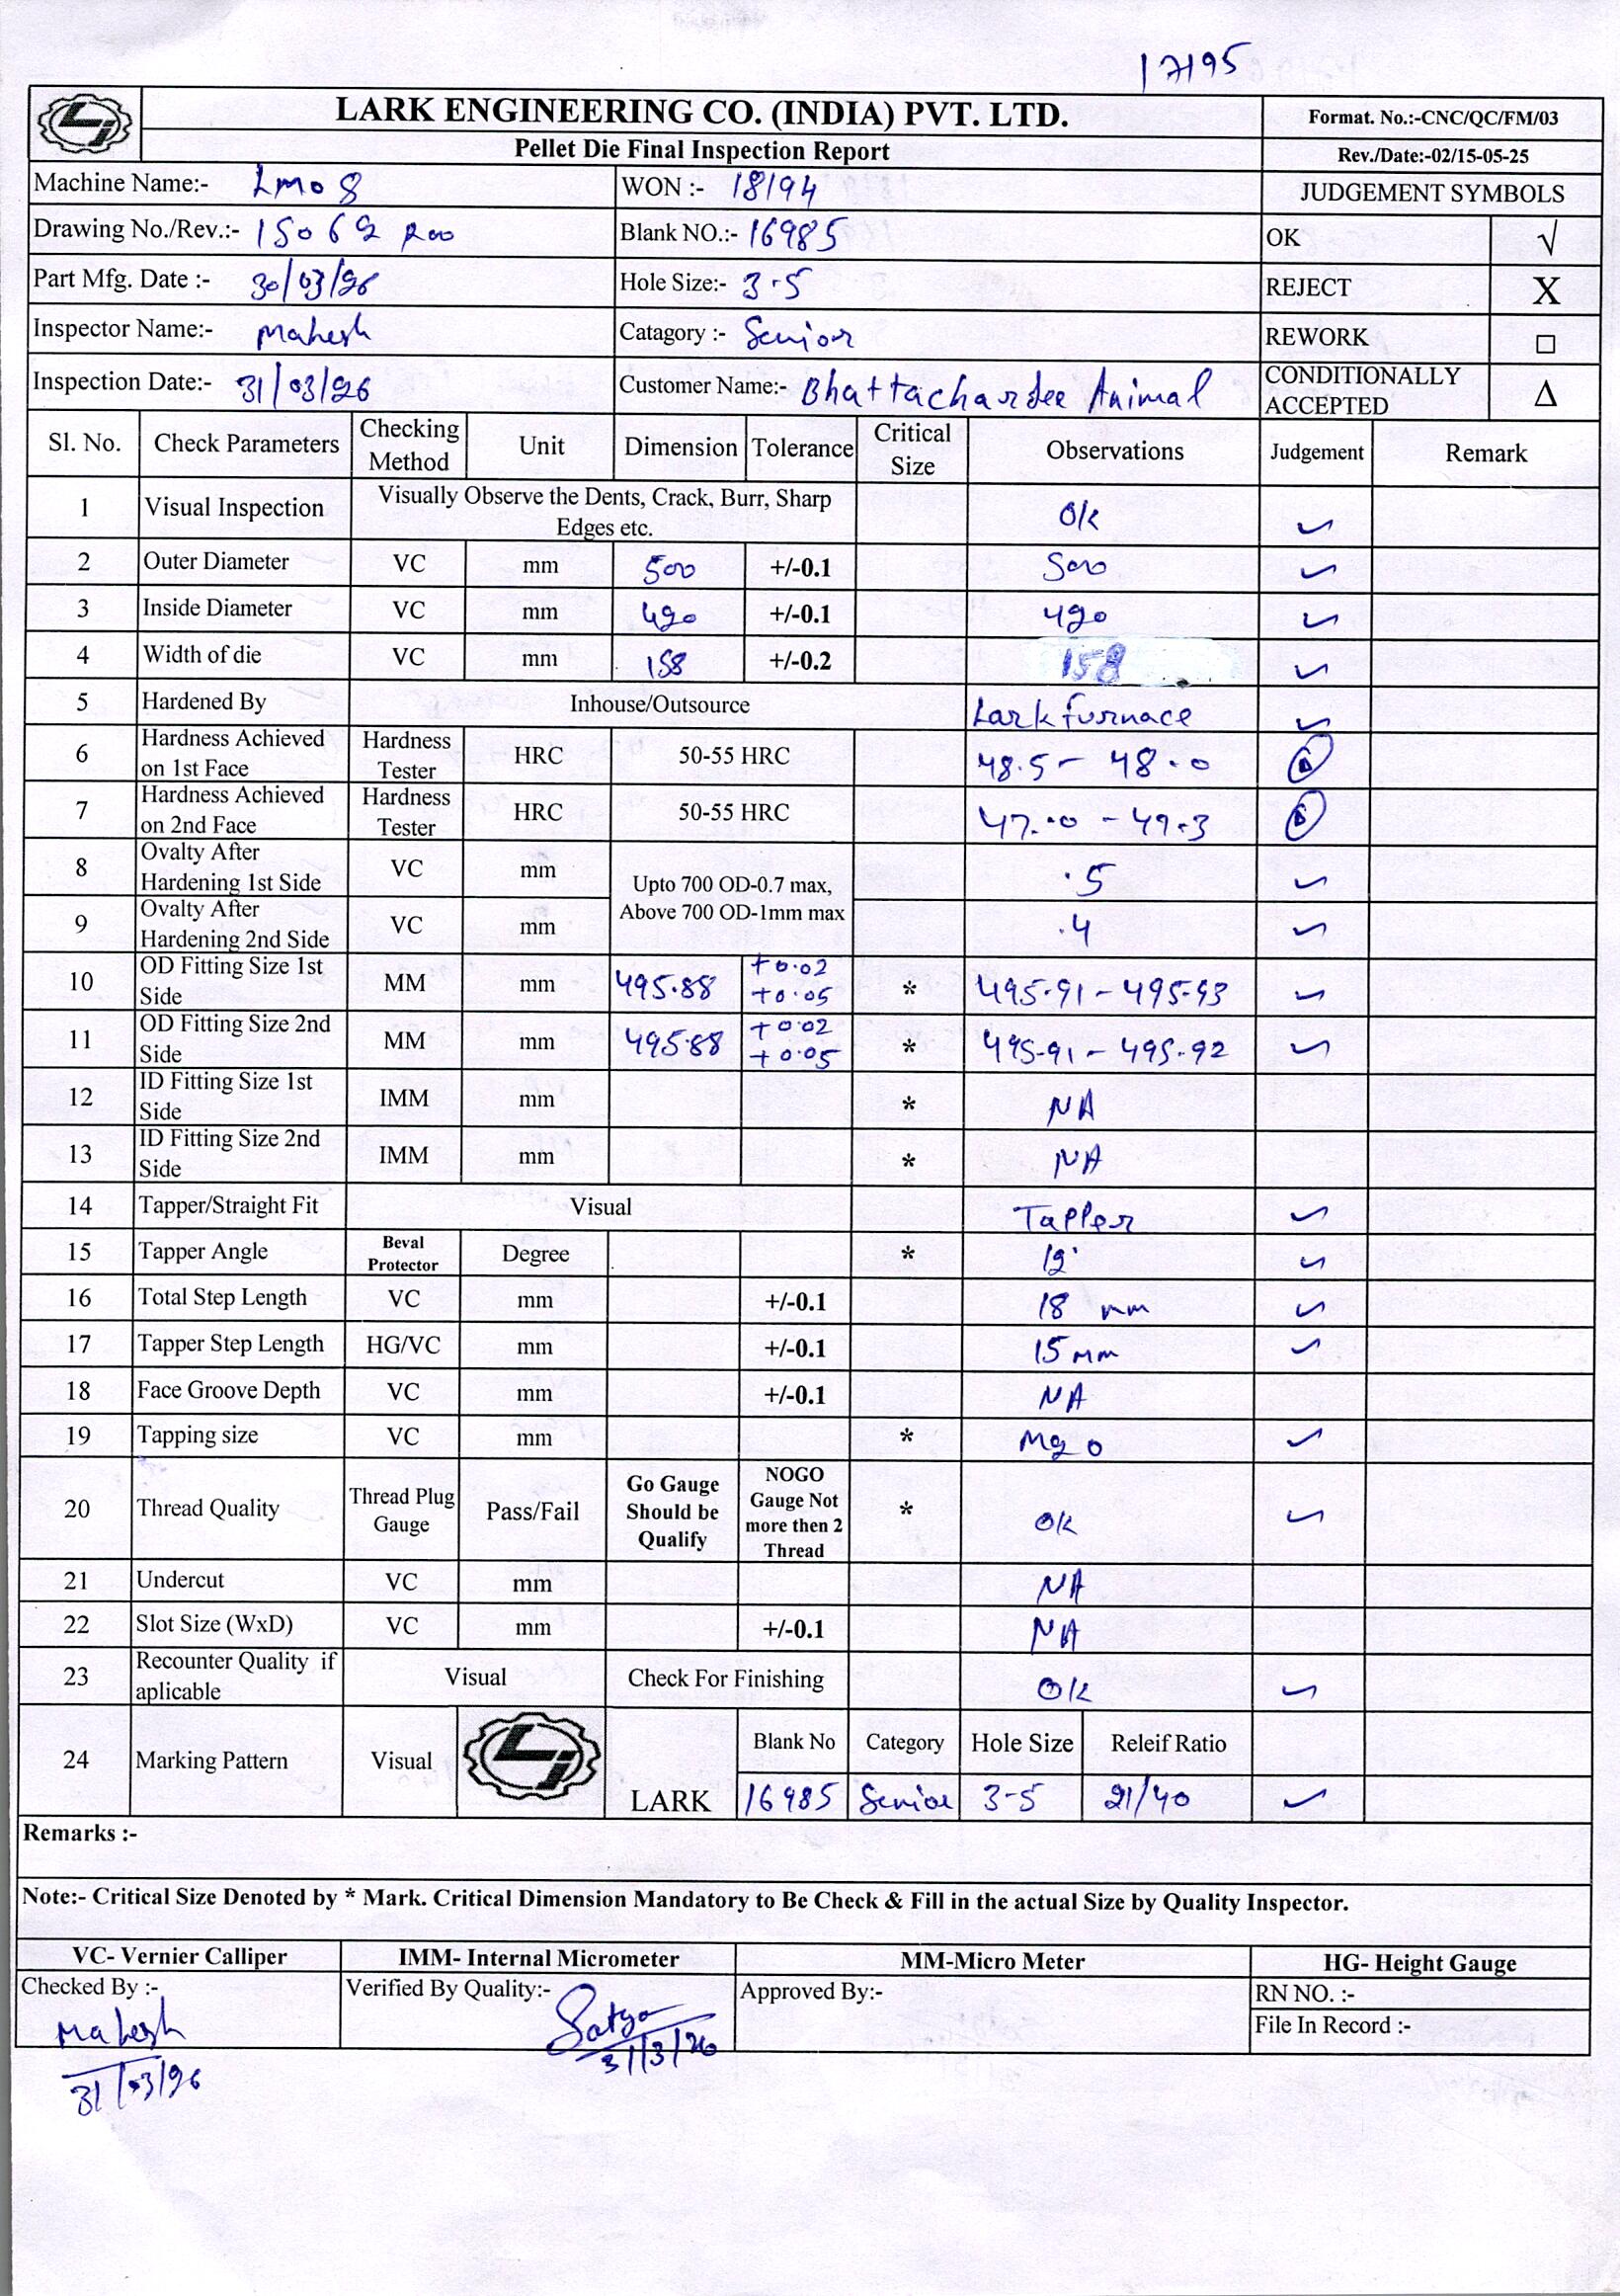 17195
LARK ENGINEERING CO. (INDIA) PVT. LTD.
Format. No.:-CNC/QC/FM/03
Pellet Die Final Inspection Report
Rev./Date:-02/15-05-25
Machine Name:- LM08 WON :- 18194 JUDGEMENT SYMBOLS
Drawing No./Rev.:- 15062 R00 Blank NO.:- 16985 OK √
Part Mfg. Date :- 30/03/26 Hole Size:- 3.5 REJECT X
Inspector Name:- Mahesh Catagory :- Senior REWORK □
Inspection Date:- 31/03/26 Customer Name:- Bhattachardee Animal CONDITIONALLY ACCEPTED Δ
Sl. No. Check Parameters Checking Method Unit Dimension Tolerance Critical Size Observations Judgement Remark
1 Visual Inspection Visually Observe the Dents, Crack, Burr, Sharp Edges etc. Ok ✓
2 Outer Diameter VC mm 500 +/-0.1 500 ✓
3 Inside Diameter VC mm 420 +/-0.1 420 ✓
4 Width of die VC mm 158 +/-0.2 158 ✓
5 Hardened By Inhouse/Outsource Lark furnace ✓
6 Hardness Achieved on 1st Face Hardness Tester HRC 50-55 HRC 48.5 - 48.0 Δ
7 Hardness Achieved on 2nd Face Hardness Tester HRC 50-55 HRC 47.0 - 49.3 Δ
8 Ovalty After Hardening 1st Side VC mm Upto 700 OD-0.7 max, Above 700 OD-1mm max .5 ✓
9 Ovalty After Hardening 2nd Side VC mm .4 ✓
10 OD Fitting Size 1st Side MM mm 495.88 +0.02 +0.05 * 495.91 - 495.93 ✓
11 OD Fitting Size 2nd Side MM mm 495.88 +0.02 +0.05 * 495.91 - 495.92 ✓
12 ID Fitting Size 1st Side IMM mm * NA
13 ID Fitting Size 2nd Side IMM mm * NA
14 Tapper/Straight Fit Visual Tapper ✓
15 Tapper Angle Beval Protector Degree * ✓
16 Total Step Length VC mm +/-0.1 18 mm ✓
17 Tapper Step Length HG/VC mm +/-0.1 15 mm ✓
18 Face Groove Depth VC mm +/-0.1 NA
19 Tapping size VC mm * M20 ✓
20 Thread Quality Thread Plug Gauge Pass/Fail Go Gauge Should be Qualify NOGO Gauge Not more then 2 Thread * OK ✓
21 Undercut VC mm NA
22 Slot Size (WxD) VC mm +/-0.1 NA
23 Recounter Quality if aplicable Visual Check For Finishing OK ✓
24 Marking Pattern Visual LARK Blank No Category Hole Size Releif Ratio
16985 Senior 3.5 21/40 ✓
Remarks :-
Note:- Critical Size Denoted by * Mark. Critical Dimension Mandatory to Be Check & Fill in the actual Size by Quality Inspector.
VC- Vernier Calliper IMM- Internal Micrometer MM-Micro Meter HG- Height Gauge
Checked By :- Verified By Quality:- Approved By:- RN NO. :-
File In Record :-
Mahesh Satya
31/03/26 31/3/26